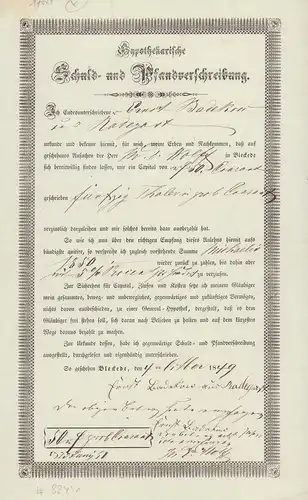 Hypothekarische
Schuld- und Pfandverschreibung.
Ich Endesunterschriebener Ernst
in
urkunde und bekenne hiermit, für mich, meine Erben und Nachkommen, daß auf
geschehenes Ansuchen der Herr in Bleckede
sich bereitwillig finden lassen, mir ein Capital von 50 Courant
geschrieben funfzig Thaler grob Courant
verzinslich darzuleihen und mir solches bereits baar ausbezahlt hat.
So wie ich nun über den richtigen Empfang dieses Anlehns hiermit aufs
bündigste quitire, so verspreche ich zugleich vorstehende Summe Michaelis
1850 wieder zurück zu zahlen, bis dahin aber
mit 5 Procent zu verzinsen.
Zur Sicherheit für Capital, Zinsen und Kosten setze ich meinem Gläubiger
mein gesammtes, beweg- und unbewegliches, gegenwärtiges und zukünftiges Vermögen,
nichts davon ausbeschieden, zu einer General-Hypothek, dergestalt, daß es dem
Gläubiger frei stehen soll, sich daran nach Belieben zu halten und auf dem kürzesten
Wege daraus bezahlt zu machen.
Zur Urkunde dessen, habe ich gegenwärtige Schuld- und Pfandverschreibung
ausgestellt, durchgelesen und eigenhändig unterschrieben.
So geschehen Bleckede, den 4 October 1849
Ernst aus
50 grob Courant